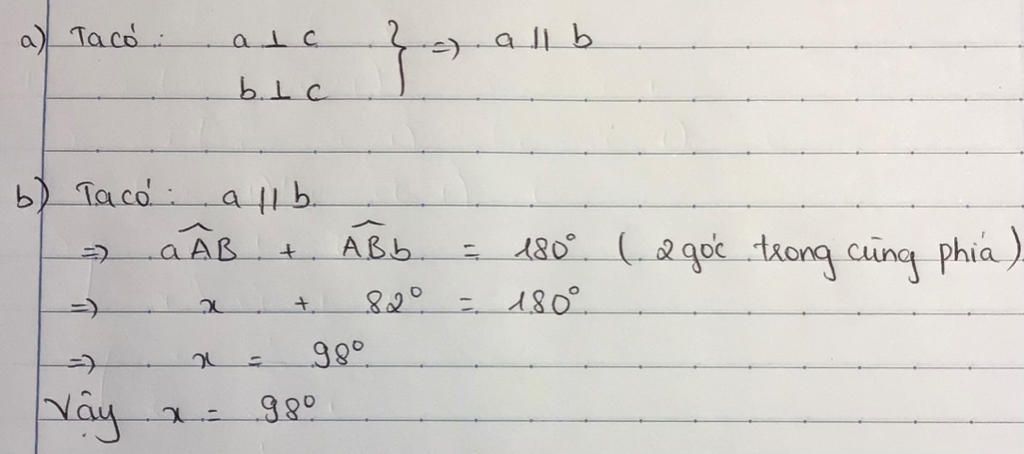 a) Ta có: a ⊥ c } => a // b
b ⊥ c
b) Ta có: a // b
=> aÂB + AB̂b = 180° ( 2 góc trong cùng phía )
=> x + 82° = 180°
=> x = 98°
Vậy x = 98°